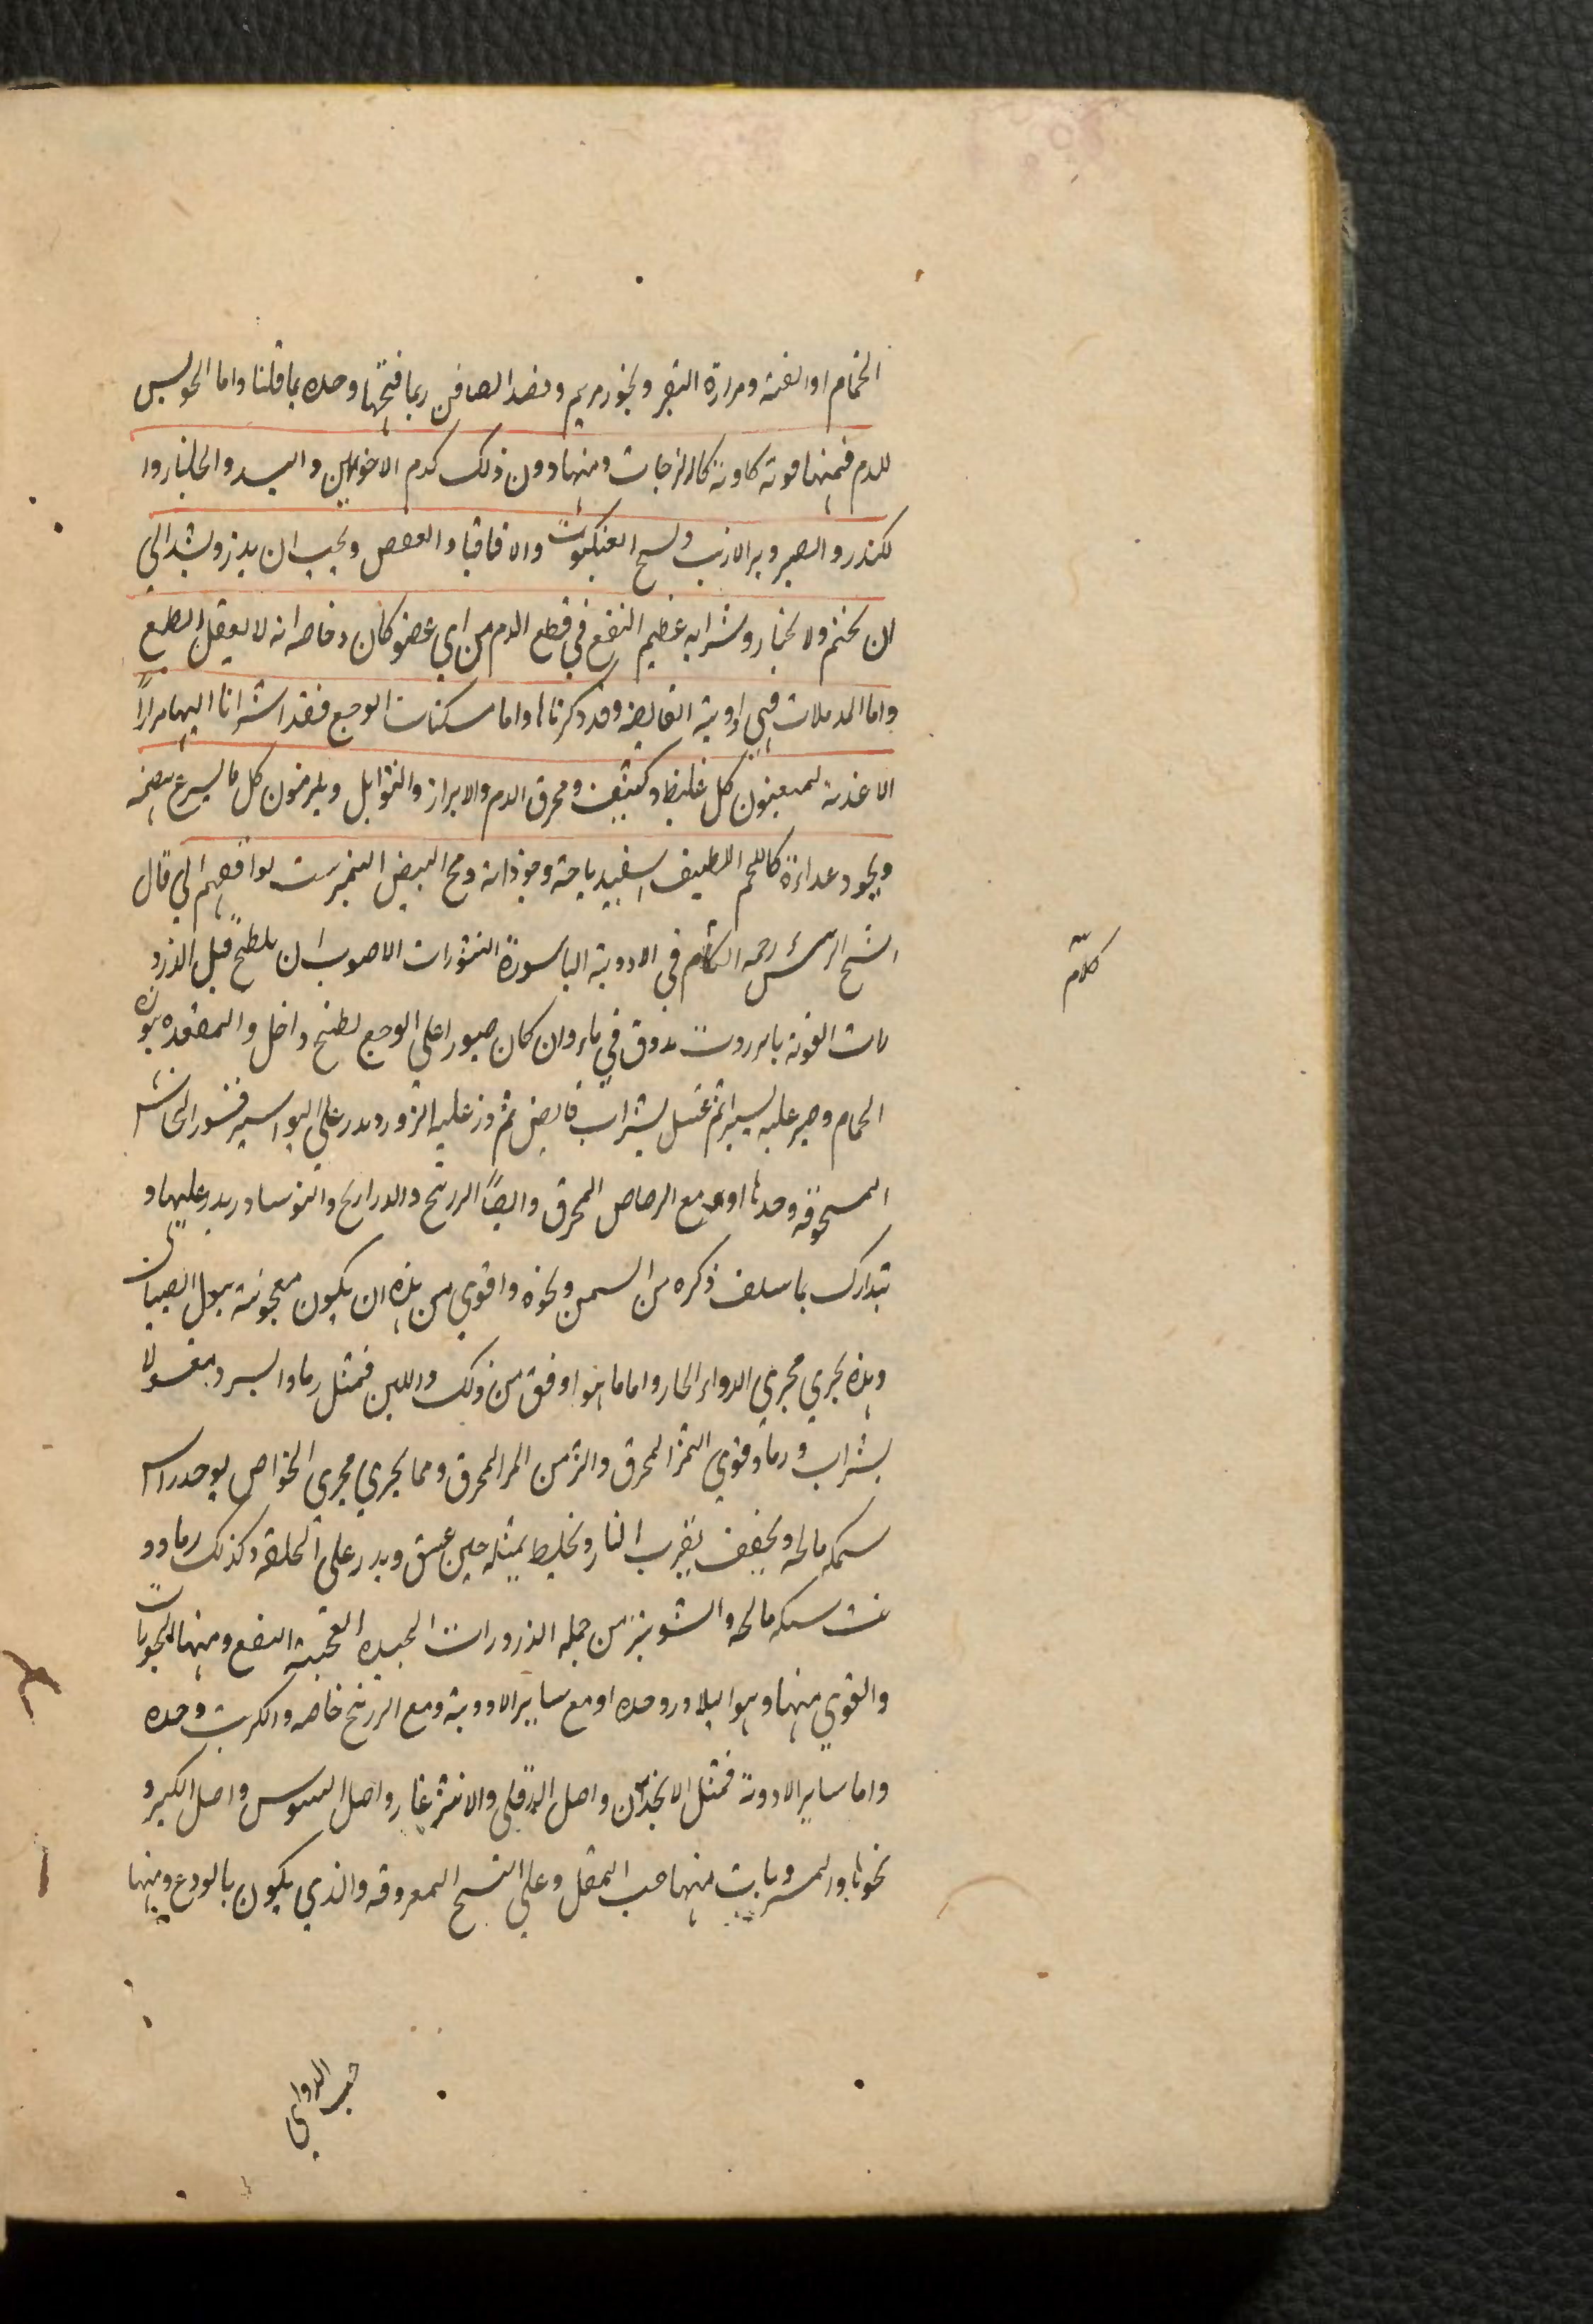 الحمام او القنة ومرارة البقر وبخور مريم وفصد الصافن ربما فتحها وحده بما قلنا واما الحوابس
للدم فمنها قوية كاوية كالزاجات ومنها دون ذلك كدم الاخوين والبسد والجلنار وا
لكندر والصبر وبر الارنب ونسج العنكبوت والاقاقيا والعفص ويجب ان يذر ويشد الي
ان يختم ولالخبار وشرابه عظيم النفع في قطع الدم من اي عضو كان وخاصه انه لا يعقل الطبع
واما المدملات فهي ادوية القابضه وقد ذكرناها واما مسكنات الوجع فقد اشرنا اليها مرارًا
الاغذية يجتنبون كل غليظ وكثيف ومحرق الدم والابزار والتوابل ويلزمون كل ما يسرع هضمه
ويجود غذاؤه كاللحم اللطيف اسفيدباجة وجوذابة ومح البيض النيمرشت يوافقهم الي قال
الشيخ الرئيس رحمه الله كلام في الادوية الباسورية النثورات الاصوب ان يلطخ قبل الذرو
رات القوية بانزروت مدوف في ماء وان كان صبورا علي الوجع لطخ داخل المقعده بنورة
الحمام وصبر عليه يسيرا ثم غسل بشراب قابض ثم ذر عليه الزرور ويذر علي البواسير قشور النحاس
المسحوقه وحدها او مع الرصاص المحرق وايضًا الزرنيخ والذراريح والنوشادر يذر عليها و
تتدارك بما سلف ذكره من السمن ونحوه واقوي من هذه ان يكون معجونة ببول الصبيان
وهذه تجري مجري الدواء الحار واما ما هو اوفق من ذلك والين فمثل رماد السرو مغسولا
بشراب ورماد نوي التمر المحرق والترمس المر المحرق ومما يجري مجري الخواص يوخذ راس
سمكه مالحه ويجفف بقرب النار ويخلط بمثله جبن عتيق ويذر علي الحلقة وكذلك رماد ذ
نب سمكه مالحه والشونيز من جمله الذرورات الجيده العجيبة النفع ومنها البخورات
والقوي منها هو البلادر وحده او مع ساير الادوية ومع الزرنيخ خاصه والكبريت وحده
واما ساير الادوية فمثل الانجدان واصل الدفلي والاشترغار واصل السوس واصل الكبر و
نحوها والمشروبات منها حب المقل وعلي النسخ المعروفه والذي يكون بالودع ومنها
كلام
حب الدوالي